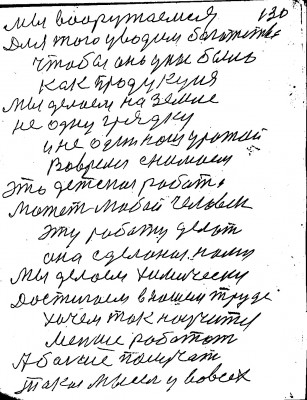 Мы вооружаемся 130
Для того уводим богатства
чтобы они у нас были
как продукция
Мы делаем на земле
не одну грядку
и не один наш урожай
Вовремя снимаем
Это детская работа
Может любой человек
эту работу делать
она сделана нами
Мы делаем химически
Достигаем в нашем труде
хотим так научится
меньше работат
А больше получат
такая мысль у всех